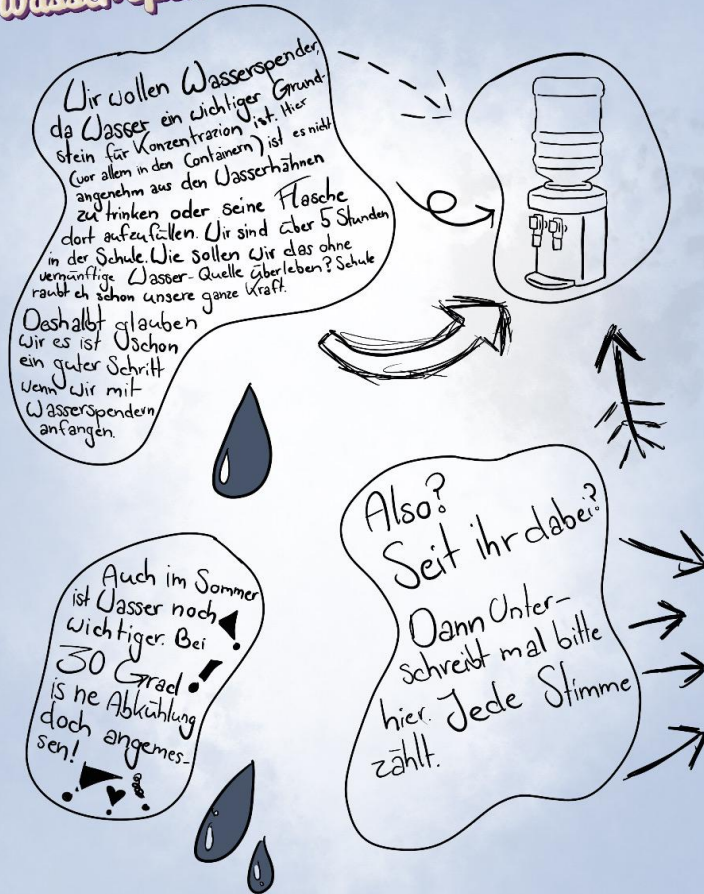 Wir wollen Wasserspender,
da Wasser ein wichtiger Grund-
stein für Konzentrazion ist. Hier
(vor allem in den Containern) ist es nicht
angenehm aus den Wasserhähnen
zu trinken oder seine Flasche
dort aufzufüllen. Wir sind über 5 Stunden
in der Schule. Wie sollen wir das ohne
vernünftige Wasser-Quelle überleben? Schule
raubt eh schon unsere ganze Kraft.
Deshalbt glauben
wir es ist schon
ein guter Schritt
wenn wir mit
Wasserspendern
anfangen.
Auch im Sommer
ist Wasser noch
wichtiger. Bei
30 Grad
is ne Abkühlung
doch angemes-
sen!
Also?
Seit ihr dabei?
Dann Unter-
schreibt mal bitte
hier. Jede Stimme
zählt.